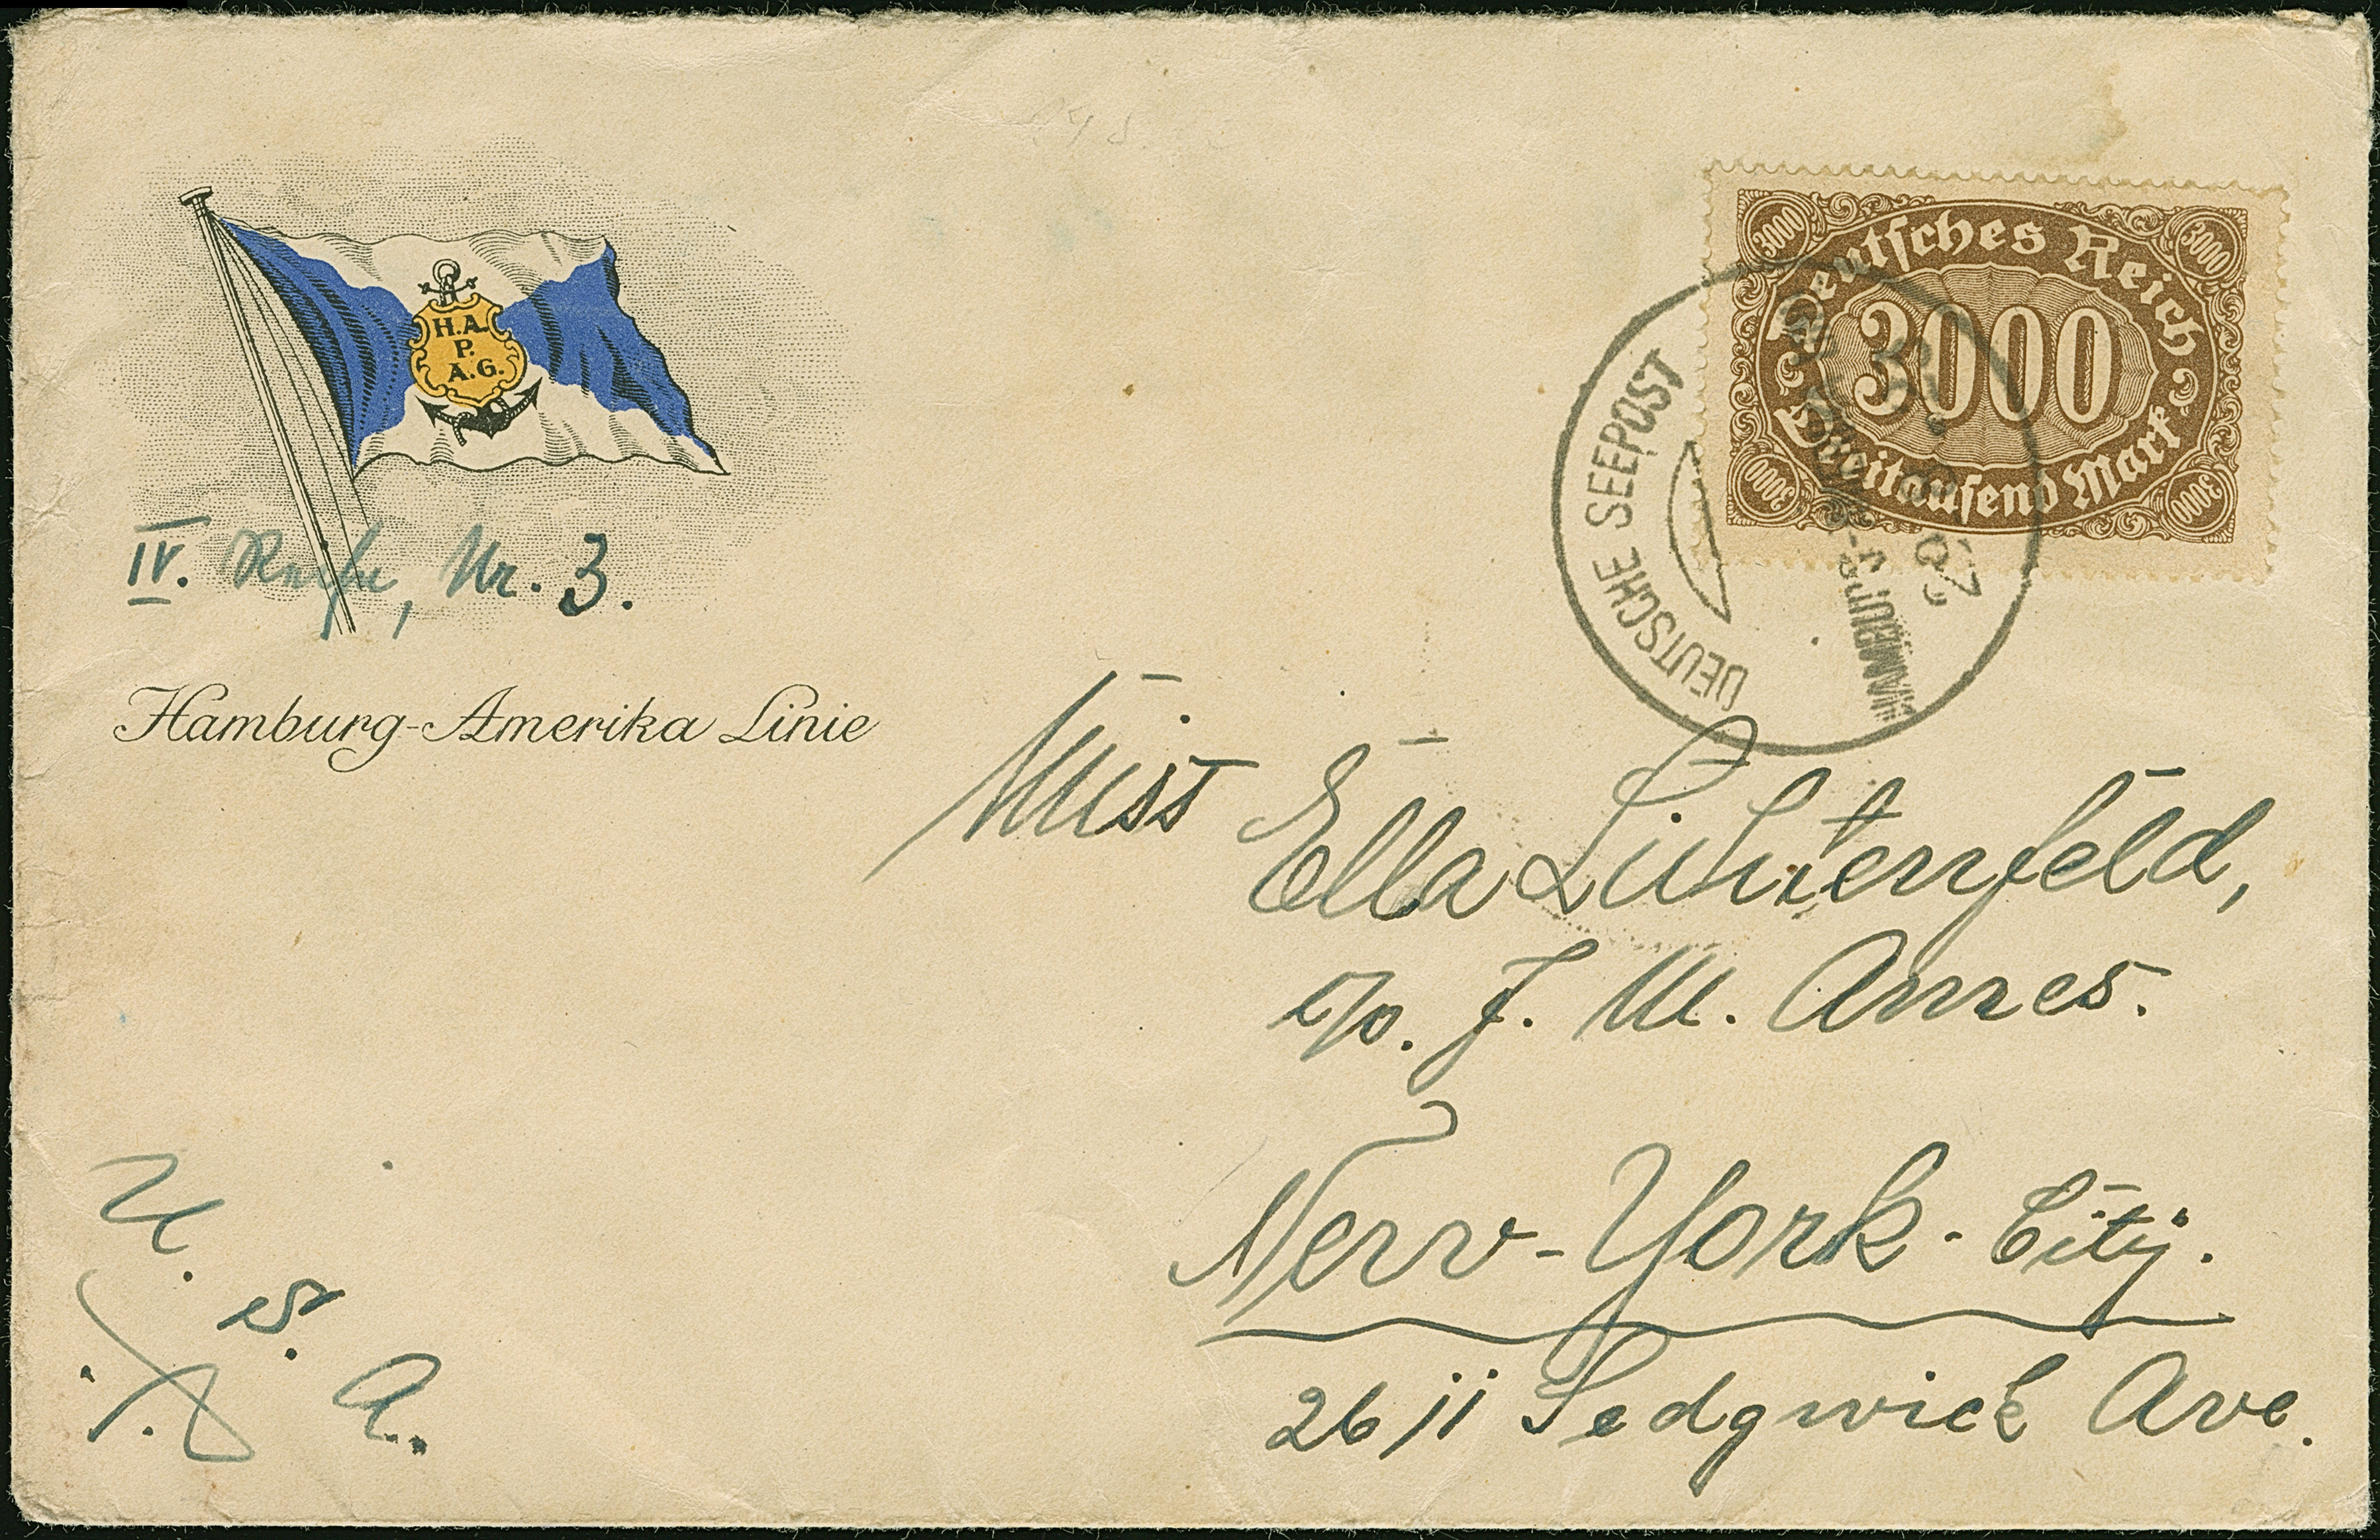 H.A.
P.
A.G.
IV. Reise, Nr. 3.
Hamburg-Amerika Linie
Deutsches Reich
3000
3000
3000
Dreitausend Mark
3000
3000
DEUTSCHE SEEPOST
Miss Ella Lichtenfeld,
c/o. J. M. Ames.
New-York-City.
2611 Sedgwick Ave.
U.
S.
A.